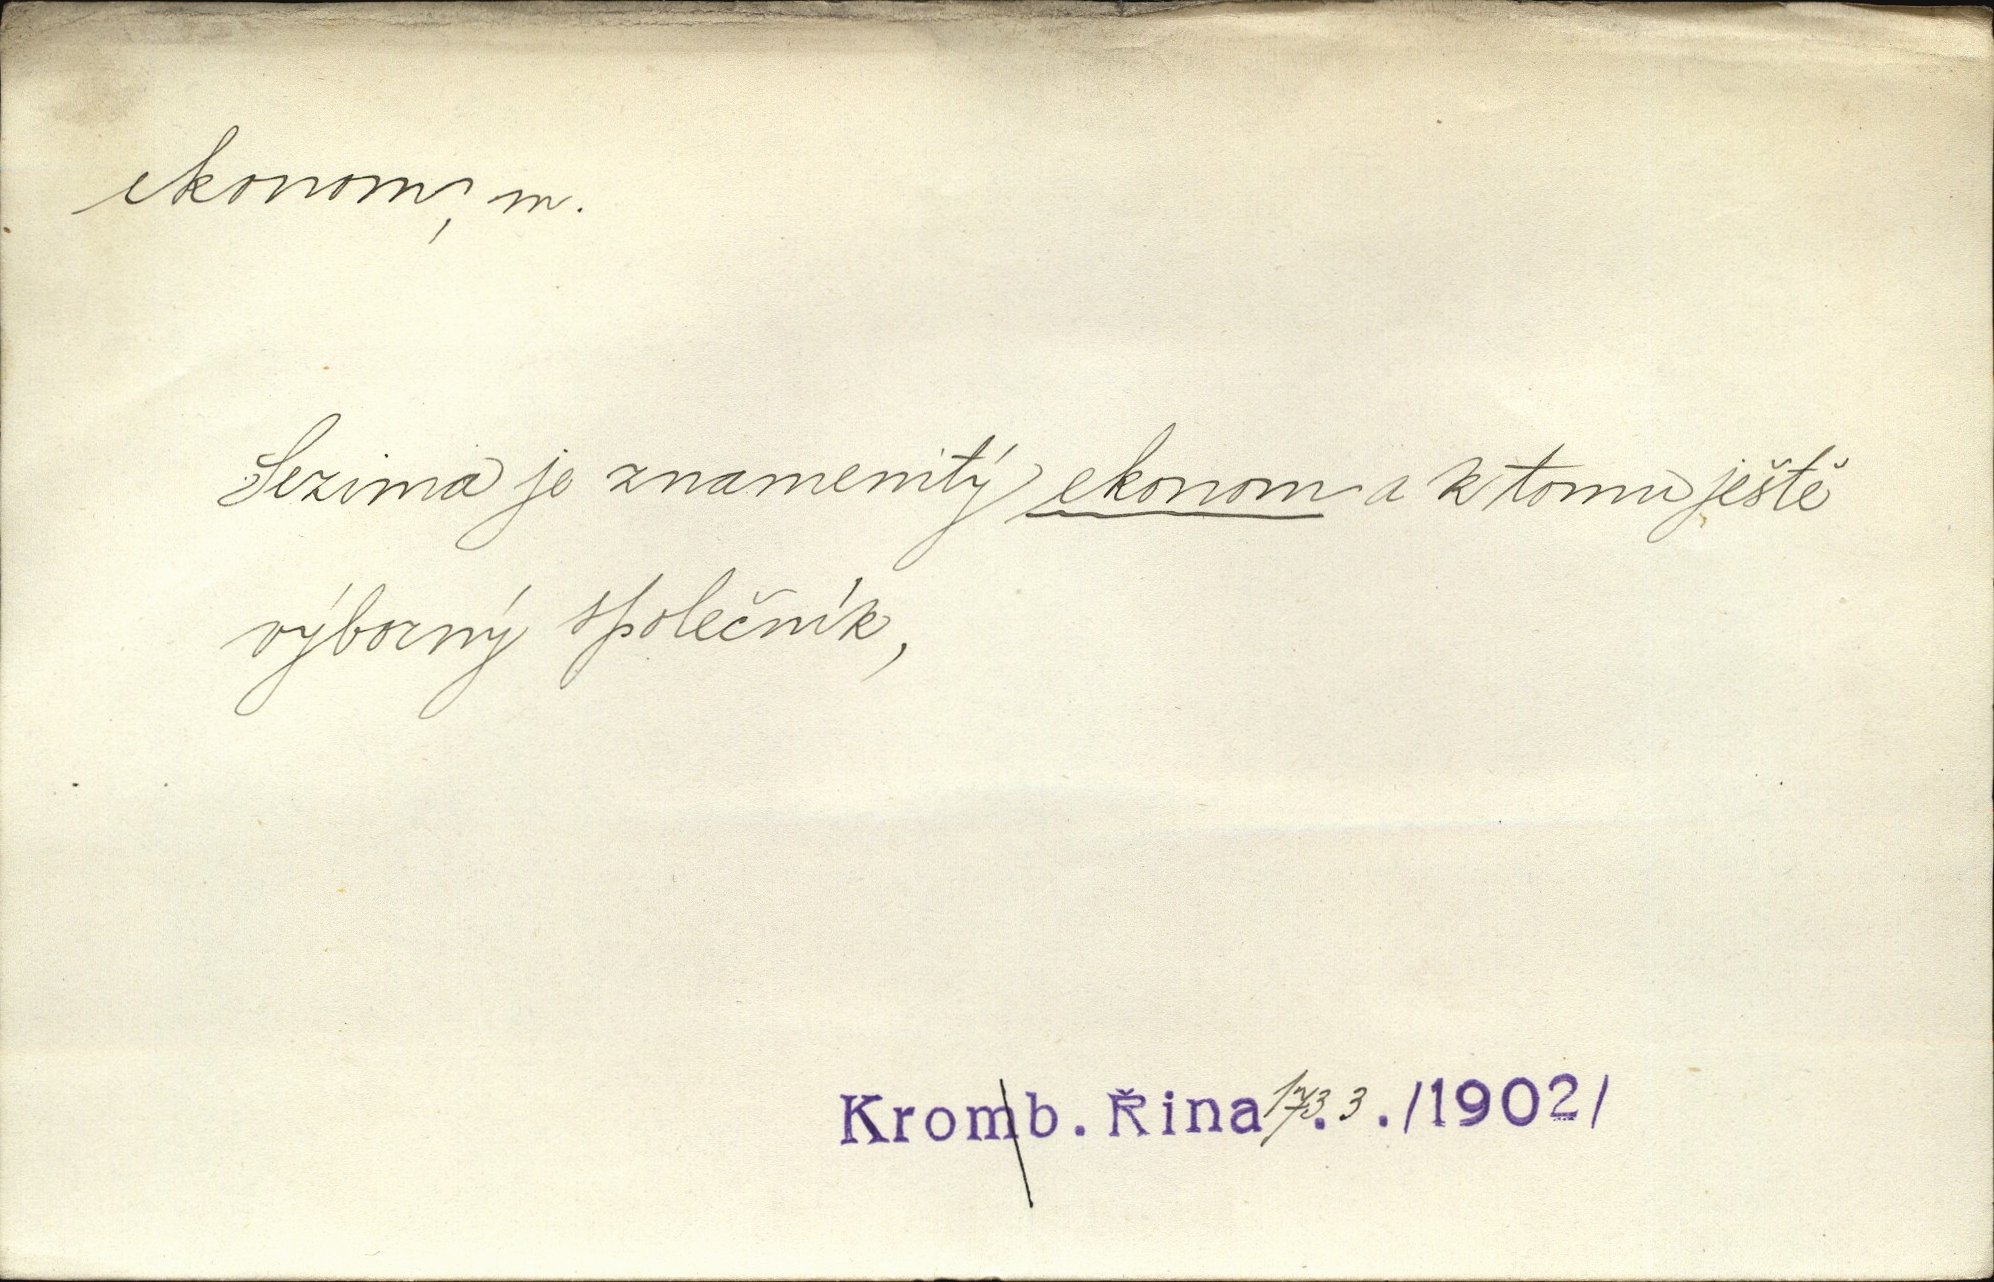 ekonom, m.
Sezima je znamenitý ekonom a k tomu ještě
výborný společník,
Kromb. Řina /1902/